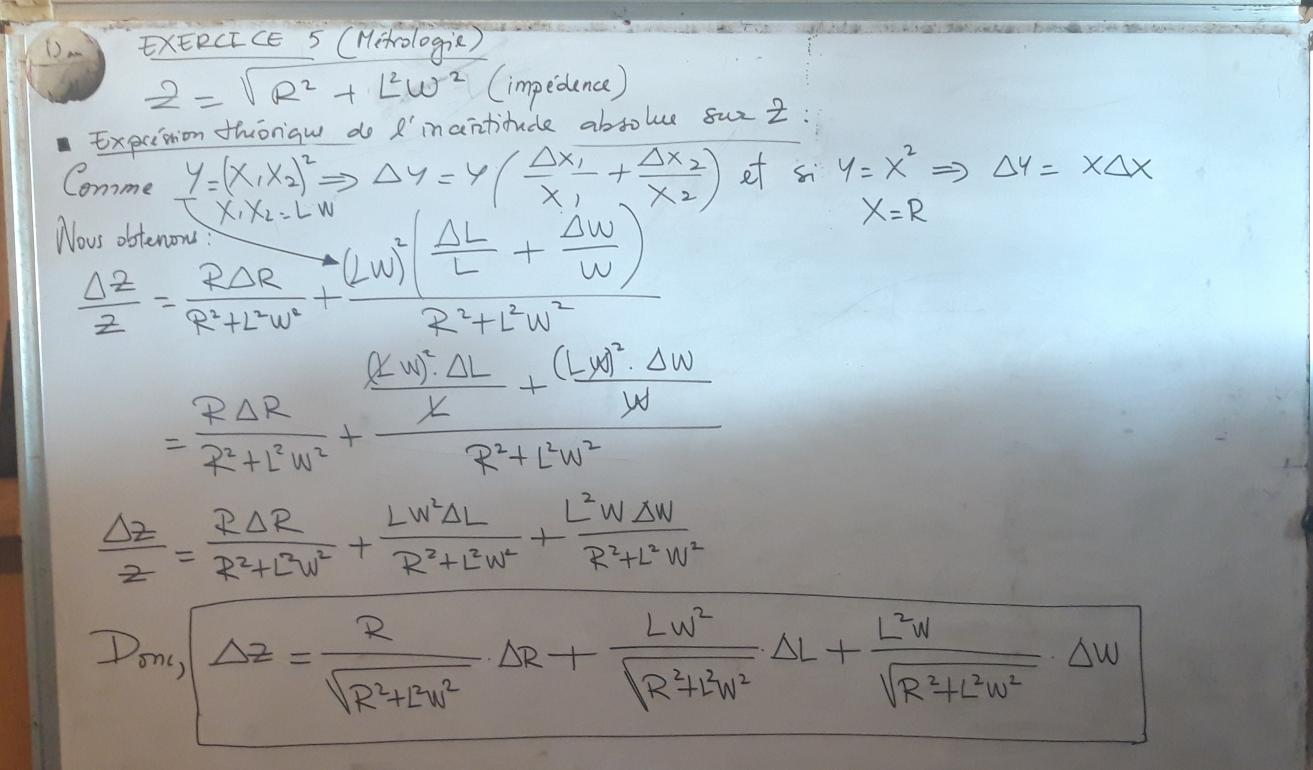 EXERCICE 5 (Métrologie)
Z = √(R² + L²W²) (impédence)
▪ Expression théorique de l'incertitude absolue sur Z :
Comme Y=(X₁X₂)² ⇒ ΔY = Y(ΔX₁/X₁ + ΔX₂/X₂) et si Y = X² ⇒ ΔY = XΔX
X₁X₂ = LW X=R
Nous obtenons :
ΔZ/Z = RΔR/(R²+L²W²) + (LW)²(ΔL/L + ΔW/W)/(R²+L²W²)
= RΔR/(R²+L²W²) + ((LW)².ΔL/L + (LW)².ΔW/W)/(R²+L²W²)
ΔZ/Z = RΔR/(R²+L²W²) + LW²ΔL/(R²+L²W²) + L²WΔW/(R²+L²W²)
Donc, ΔZ = R/√(R²+L²W²) . ΔR + LW²/√(R²+L²W²) . ΔL + L²W/√(R²+L²W²) . ΔW